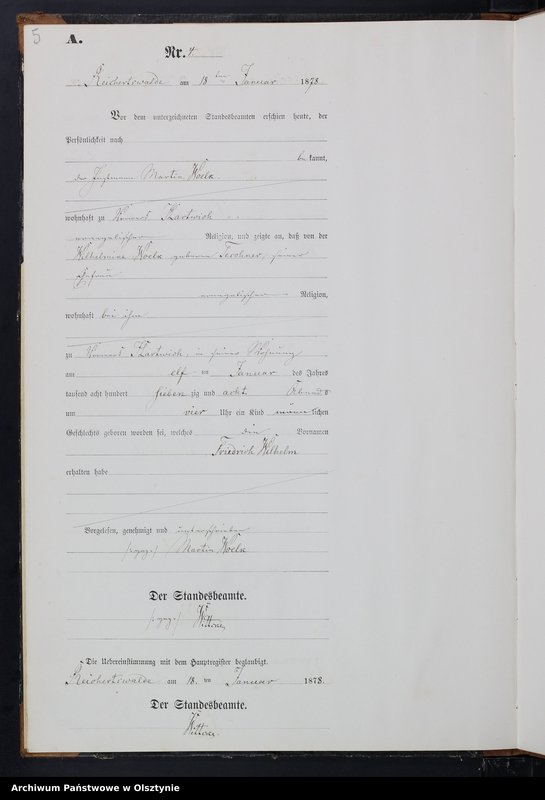 5
A.
Nr. 4
Reichertswalde am 18 ten Januar 1878
Vor dem unterzeichneten Standesbeamten erschien heute, der
Persönlichkeit nach
be kannt,
der Martin Woelk
wohnhaft zu Kartwich
evangelischer Religion, und zeigte an, daß von der
Wilhelmine Woelk geborene Teschner, seiner
Ehefrau
evangelischer Religion,
wohnhaft bei ihm
zu Kartwich, in seiner Wohnung
am elf ten Januar des Jahres
tausend acht hundert sieben zig und acht Abend s
um vier Uhr ein Kind männ lichen
Geschlechts geboren worden sei, welches die Vornamen
Friedrich Wilhelm
erhalten habe
Vorgelesen, genehmigt und unterschrieben
(gez.) Martin Woelk
Der Standesbeamte.
(gez.)
Die Uebereinstimmung mit dem Hauptregister beglaubigt.
Reichertswalde am 18. ten Januar 1878.
Der Standesbeamte.
Archiwum Państwowe w Olsztynie